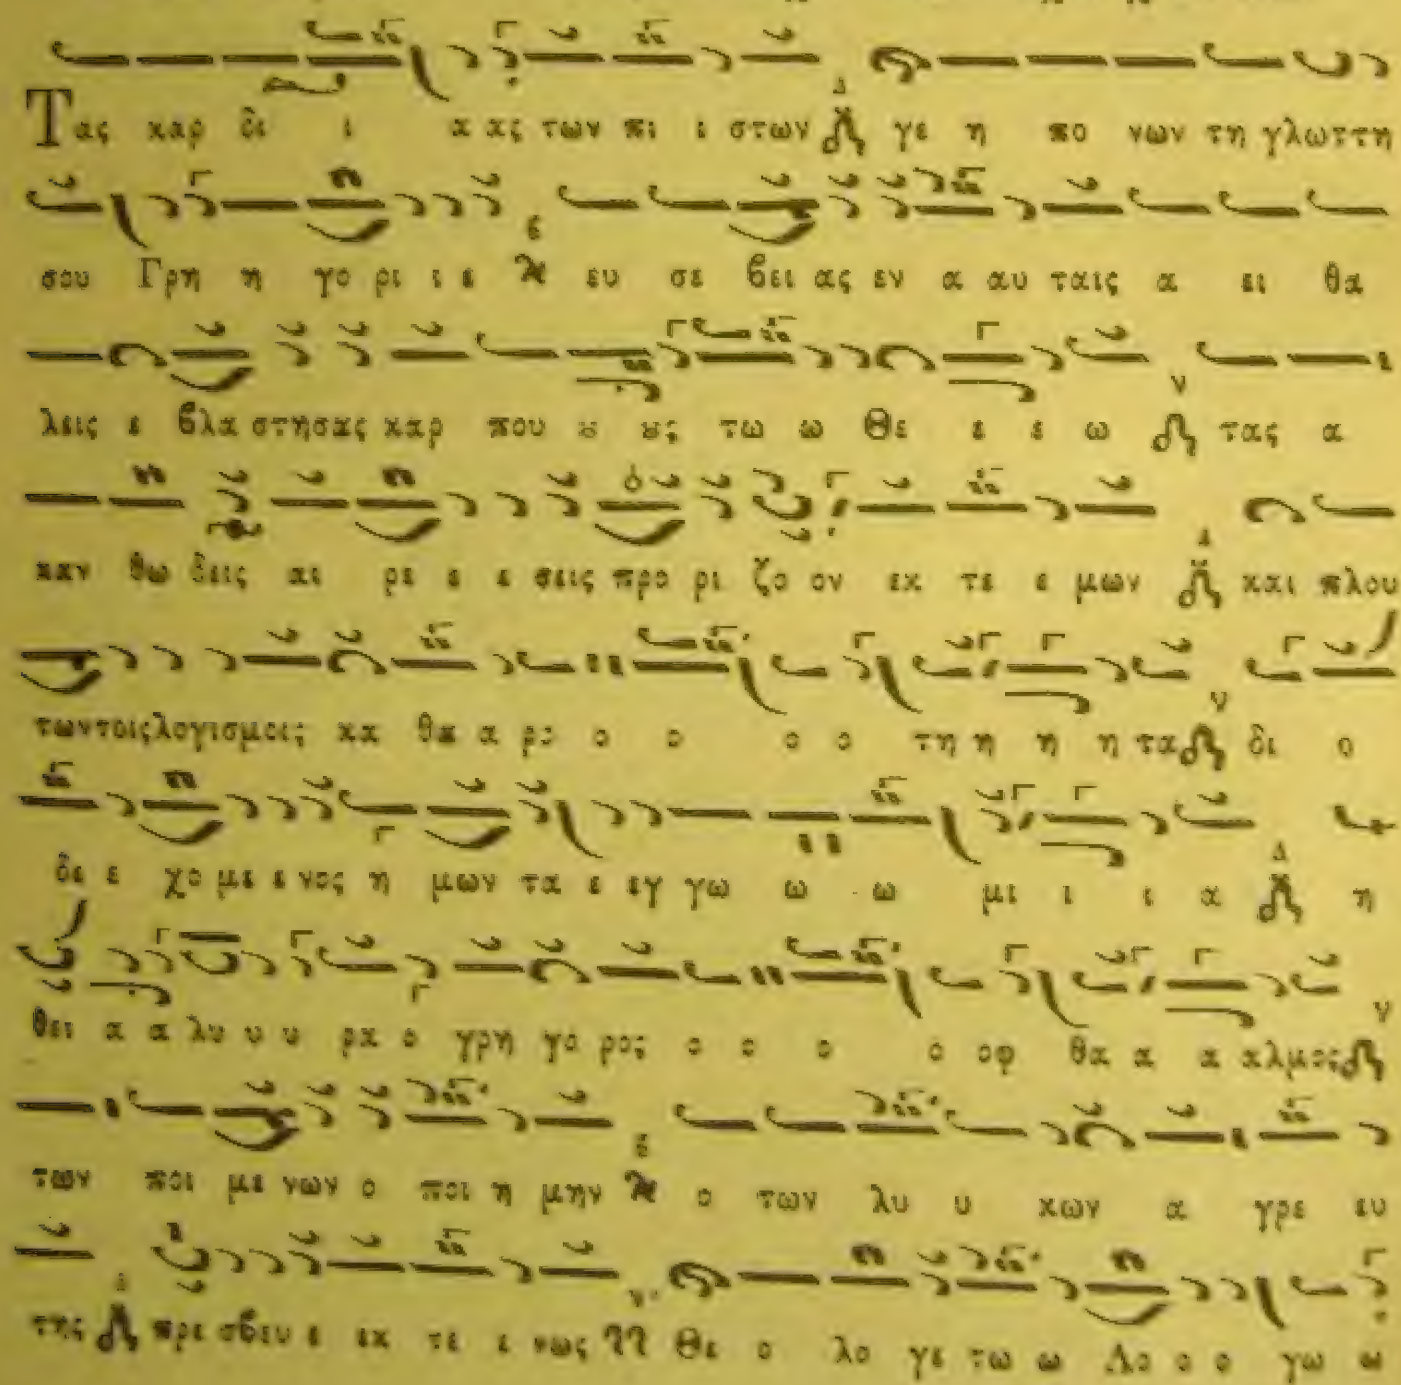 Τας καρ δι ι α ας των πι ι στων γε η πο νων τη γλωττη
σου Γρη η γο ρι ι ε ευ σε βει ας εν α αυ ταις α ει θα
λεις ε βλα στησας καρ που ȣ ȣς τω ω Θε ε ε ω τας α
καν θω δεις αι ρε ε ε σεις προ ρι ζο ον εκ τε ε μων και πλου
των τοις λογισμοις κα θα α ρο ο ο ο ο τη η η η τα δι ο
δε ε χο με ε νος η μων τα ε εγ γω ω ω μι ι ι α η
θει α α λυ υ υ ρα ο γρη γο ρος ο ο ο ο οφ θα α α αλμος
των ποι με νων ο ποι η μην ο των λυ υ κων α γρε ευ
της πρε σβευ ε εκ τε ε νως Θε ο λο γε τω ω Λο ο ο γω ω